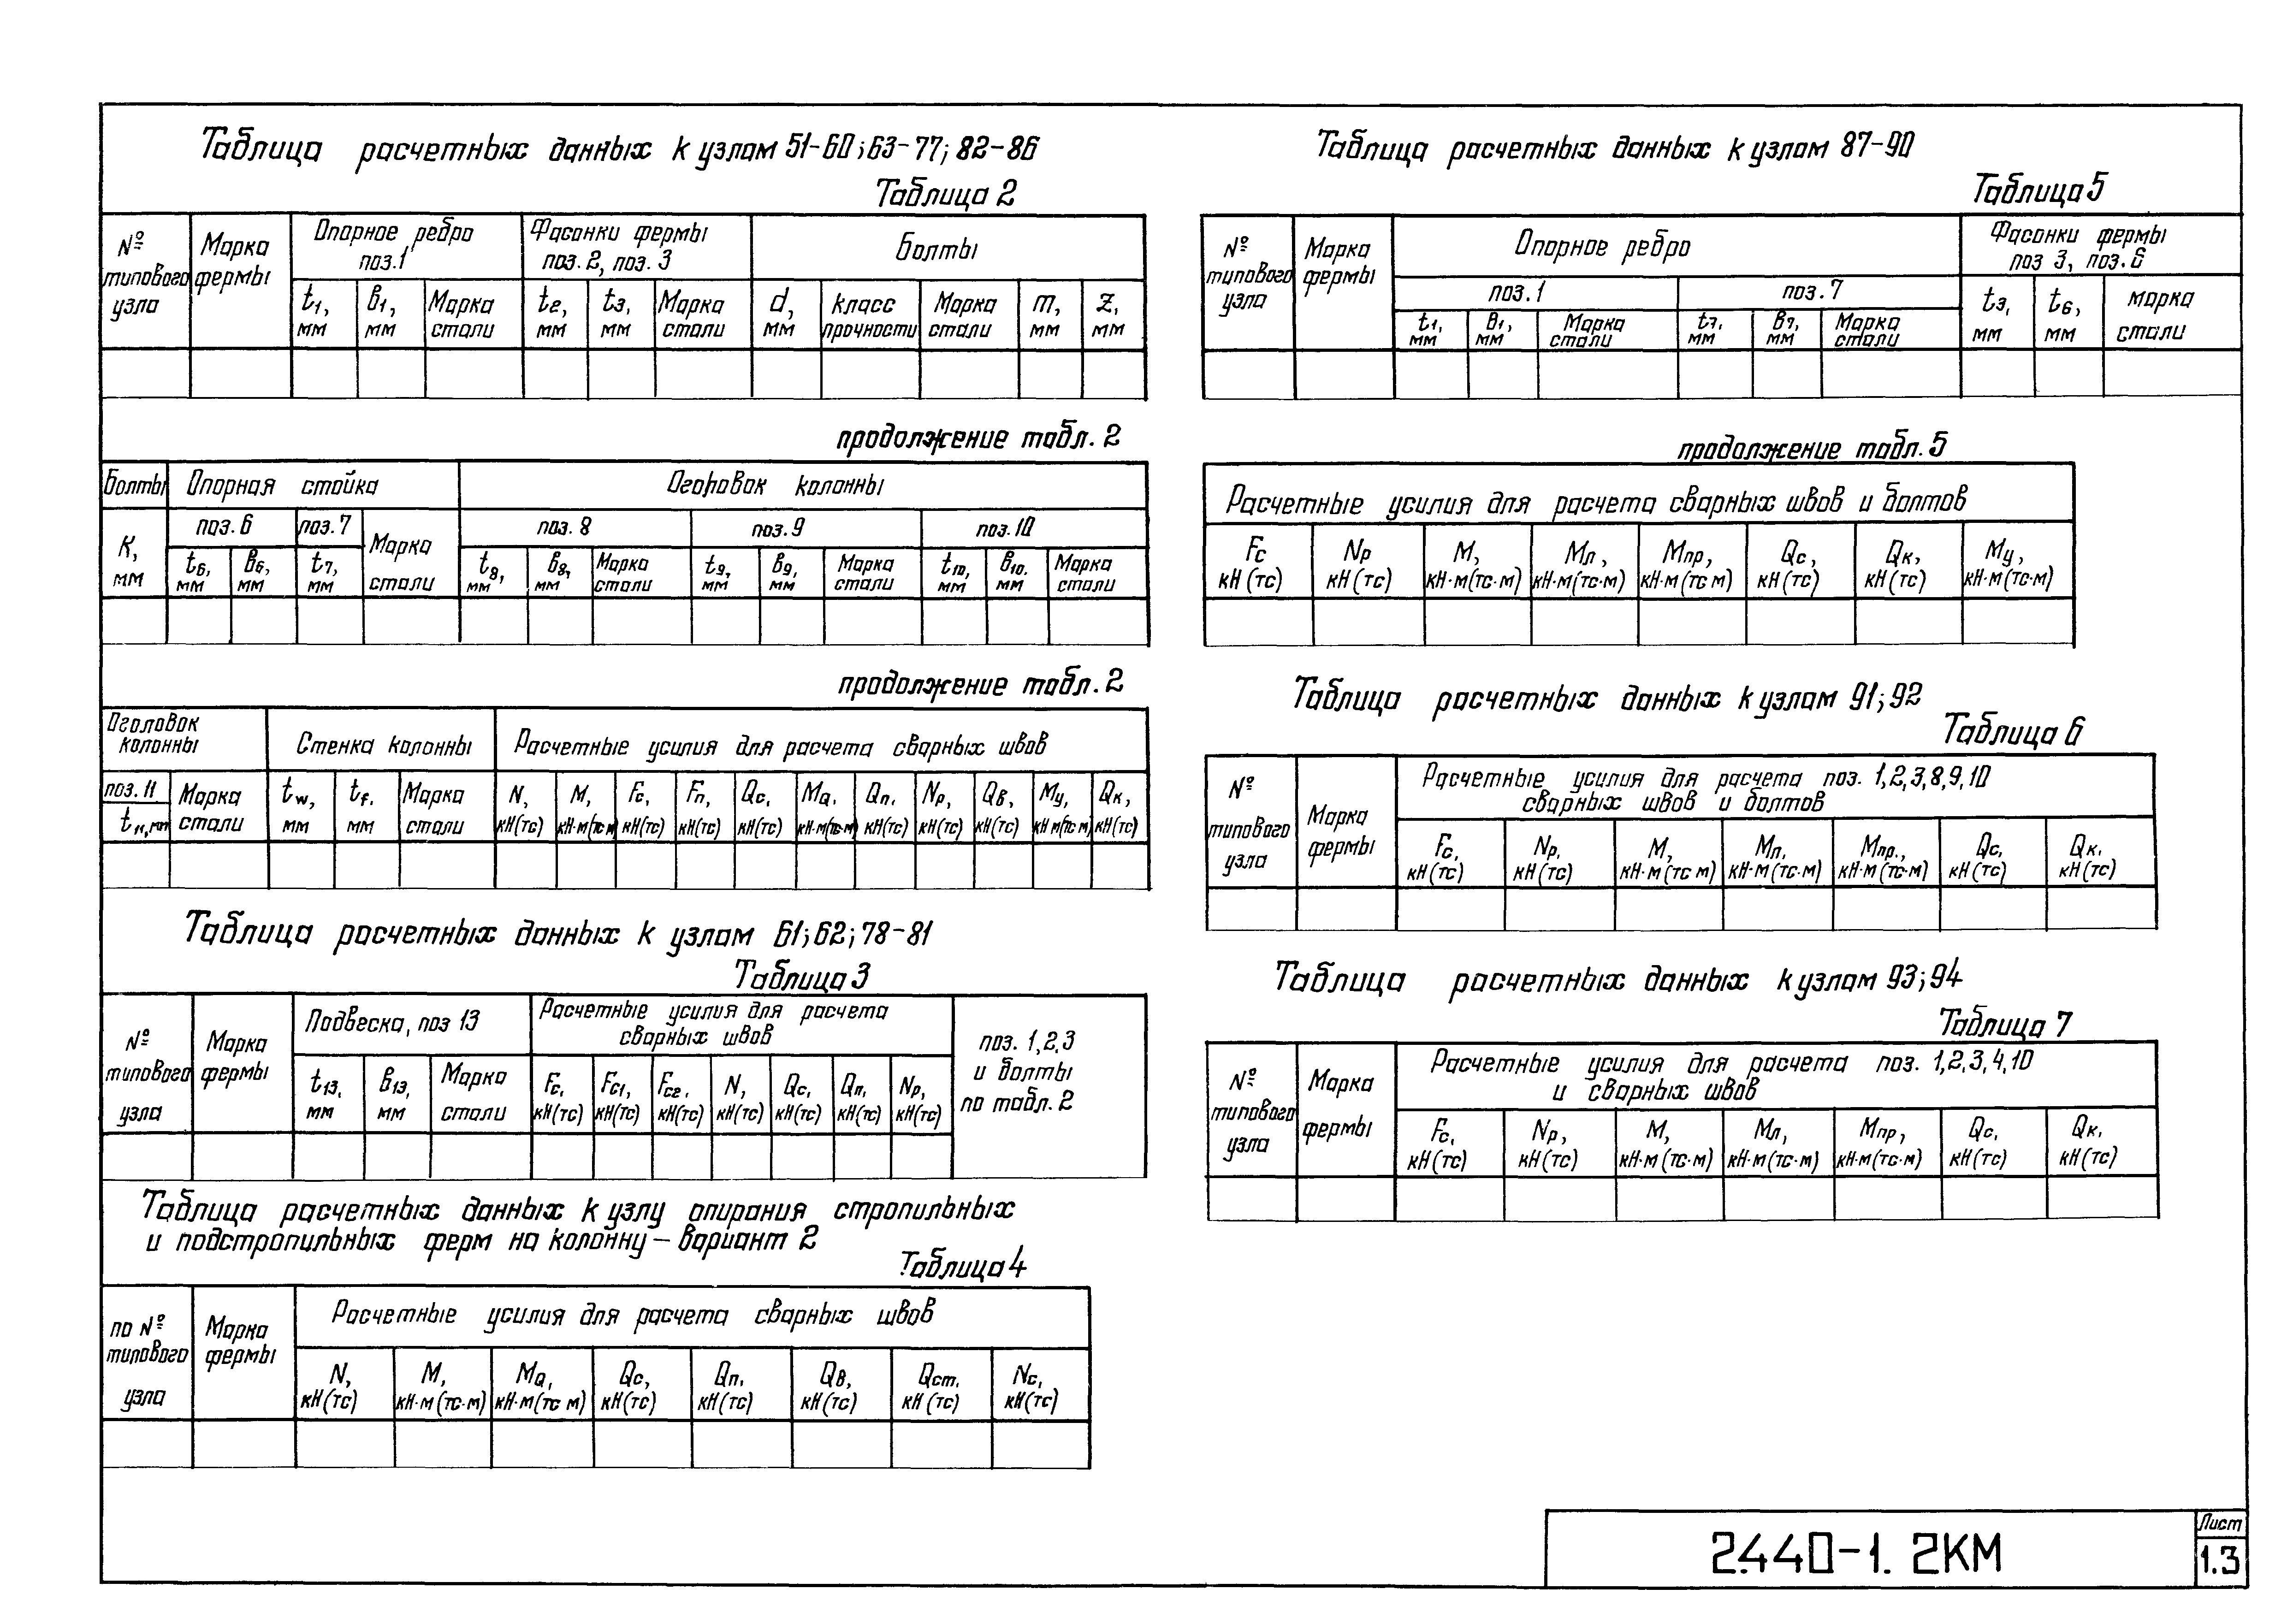 Таблица расчетных данных к узлам 51-60; 63-77; 82-86
Таблица 2
№ типового узла
Марка фермы
Опорное ребро поз.1
Фасонки фермы поз. 2, поз. 3
Болты
t1, мм
в1, мм
Марка стали
t2, мм
t3, мм
Марка стали
d, мм
класс прочности
Марка стали
m, мм
z, мм
продолжение табл. 2
Болты
Опорная стойка
Оголовок колонны
К, мм
поз. 6
поз. 7
Марка стали
поз. 8
поз. 9
поз. 10
t6, мм
в6, мм
t7, мм
t8, мм
в8, мм
Марка стали
t9, мм
в9, мм
Марка стали
t10, мм
в10, мм
Марка стали
продолжение табл. 2
Оголовок колонны
Стенка колонны
Расчетные усилия для расчета сварных швов
поз. 11
t11, мм
Марка стали
tw, мм
tf, мм
Марка стали
N, кН(тс)
М, кН·м(тс м)
Fс, кН(тс)
Fп, кН(тс)
Qс, кН(тс)
МQ, кН·м(тс·м)
Qп, кН(тс)
Nр, кН(тс)
Qв, кН(тс)
Му, кН м(тс м)
Qк, кН(тс)
Таблица расчетных данных к узлам 61; 62; 78-81
Таблица 3
№ типового узла
Марка фермы
Подвеска, поз 13
Расчетные усилия для расчета сварных швов
поз. 1,2,3 и болты по табл. 2
t13, мм
в13, мм
Марка стали
Fс, кН(тс)
Fс1, кН(тс)
Fс2, кН(тс)
N, кН(тс)
Qс, кН(тс)
Qп, кН(тс)
Nр, кН(тс)
Таблица расчетных данных к узлу опирания стропильных
и подстропильных ферм на колонну – вариант 2
Таблица 4
по № типового узла
Марка фермы
Расчетные усилия для расчета сварных швов
N, кН(тс)
М, кН·м(тс·м)
МQ, кН·м(тс м)
Qс, кН(тс)
Qп, кН(тс)
Qв, кН(тс)
Qст, кН(тс)
Nс, кН(тс)
Таблица расчетных данных к узлам 87-90
Таблица 5
№ типового узла
Марка фермы
Опорное ребро
Фасонки фермы поз 3, поз. 6
поз. 1
поз. 7
t1, мм
в1, мм
Марка стали
t7, мм
в7, мм
Марка стали
t3, мм
t6, мм
марка стали
продолжение табл. 5
Расчетные усилия для расчета сварных швов и болтов
Fс кН(тс)
Nр кН(тс)
М, кН·м(тс·м)
Мл, кН·м(тс·м)
Мпр, кН·м(тс м)
Qс, кН(тс)
Qк, кН(тс)
Му, кН·м(тс·м)
Таблица расчетных данных к узлам 91; 92
Таблица 6
№ типового узла
Марка фермы
Расчетные усилия для расчета поз. 1,2,3,8,9,10
сварных швов и болтов
Fс, кН(тс)
Nр, кН(тс)
М, кН·м(тс м)
Мл, кН·м(тс·м)
Мпр., кН·м(тс·м)
Qс, кН(тс)
Qк, кН(тс)
Таблица расчетных данных к узлам 93; 94
Таблица 7
№ типового узла
Марка фермы
Расчетные усилия для расчета поз. 1,2,3,4,10
и сварных швов
Fс, кН(тс)
Nр, кН(тс)
М, кН·м(тс·м)
Мл, кН·м(тс·м)
Мпр, кН·м(тс·м)
Qс, кН(тс)
Qк, кН(тс)
2.440-1. 2КМ
Лист
1.3